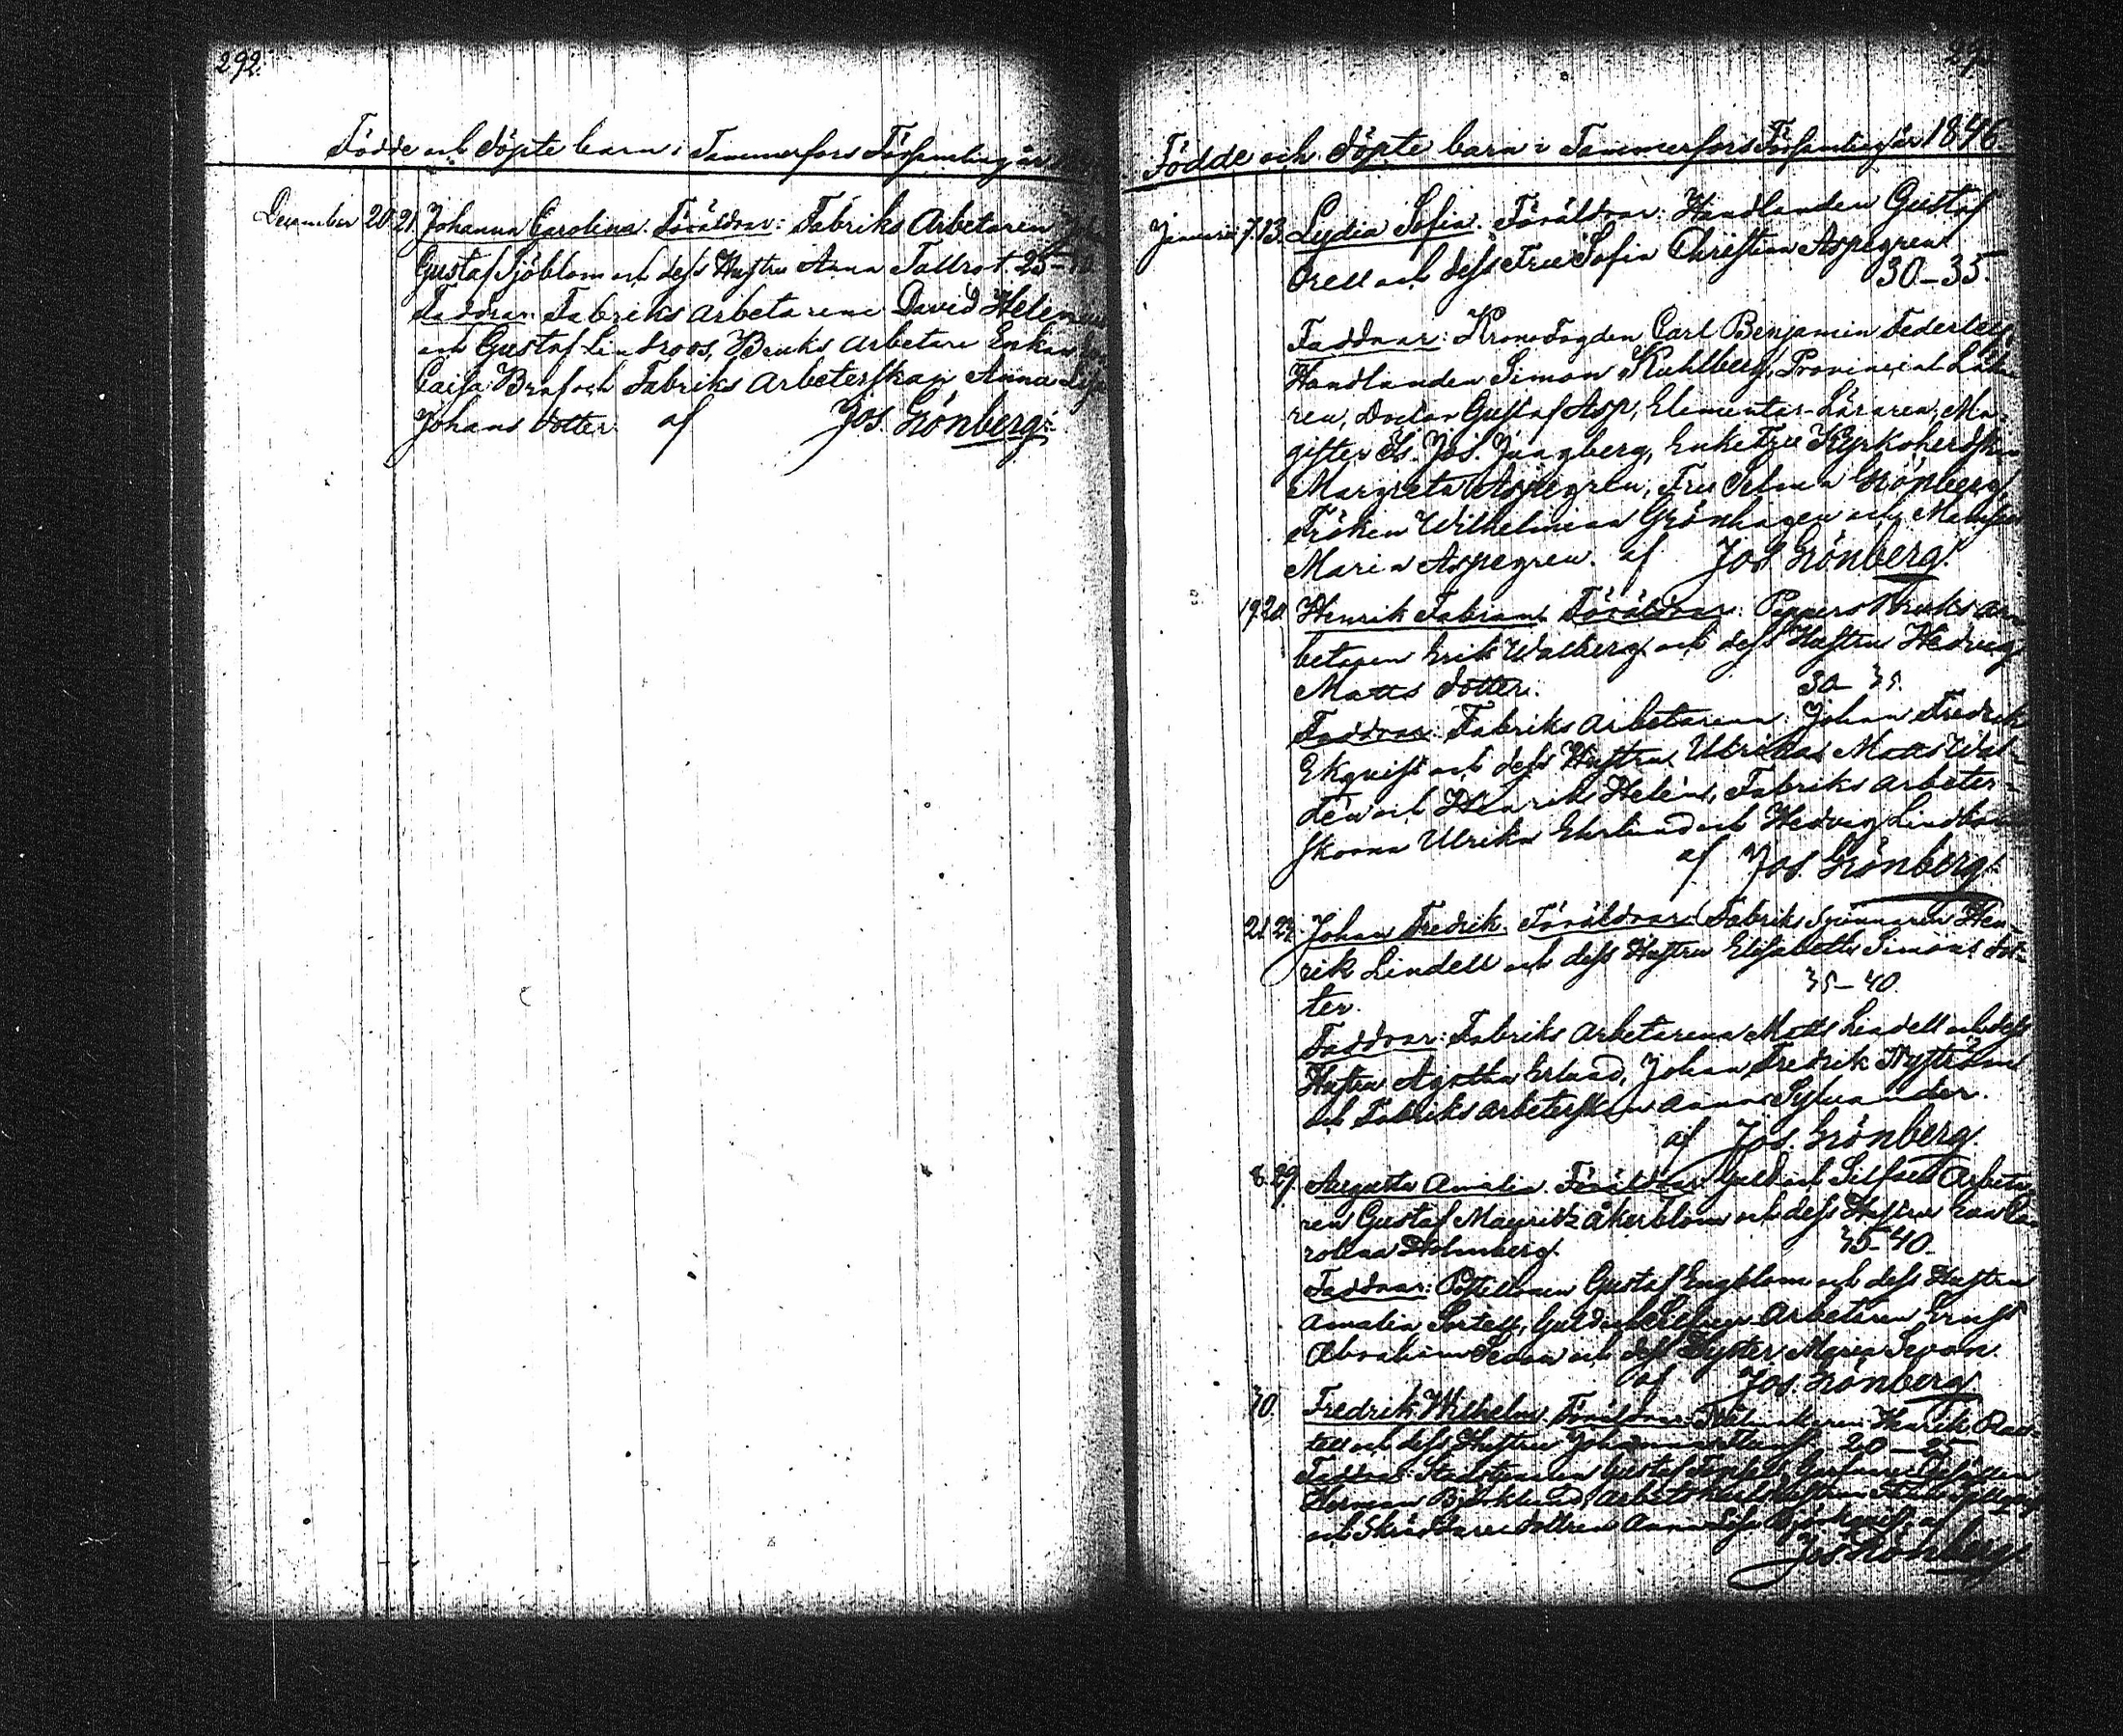 292.
Födde och döpte barn i Tammerfors Församling år
December 20. 21. Johanna Carolina. Föräldrar: Fabriks Arbetaren
Gustaf Sjöblom och dess Hustru Anna Tallrot. 25-
Faddrar: Fabriks arbetarene David Helenius
och Gustaf Lindroos, Bruks arbetare Enkan
Caisa Braf och Fabriks Arbeterskan Anna Lisa
Johans dotter. af Jos. Grönberg.
Födde och döpte barn i Tammerfors Församling år 1846.
Januari 7. 13. Lydia Sofia. Föräldrar: Handlanden Gustaf
Orell och dess Fru Sofia Christina Aspegren.
30-35.
Faddrar: KronoFogden Carl Benjamin Federley,
Handlanden Simon Kuhlberg, Provincial Läka-
ren, Doctor Gustaf Asp, Elementar-Läraren, Ma-
gister Is. Jos. Ljungberg, EnkeFru Kyrkoherdskan
Margreta Aspegren, Fru Selma Grönberg,
Fröken Wilhelmina Grönhagen och Mamsell
Maria Aspegren. af Jos Grönberg.
19. 20. Henrik Fabian. Föräldrar: Pappers Bruks ar-
betaren Erik Walberg och dess Hustru Hedvig
Matts dotter. 30-35.
Faddrar: Fabriks arbetarena: Johan Fredrik
Ekqvist och dess Hustru Ulrika, Matts Wal-
dén och Henrik Helén, Fabriks arbeter-
skorna Ulrika Ehrlund och Hedvig Lindbom
af Jos. Grönberg.
21. Johan Fredrik. Föräldrar: Fabriks Spinnaren Hen-
rik Lindell och dess Hustru Elisabeth Simons dot-
ter. 35-40.
Faddrar: Fabriks Arbetarena Matts Lindell och dess
Hustru Agatha Erlund, Johan Fredrik Nyström
och Fabriks arbeterskan Anna Sylvander.
af Jos. Grönberg.
29. Augusta Amalia. Föräldrar: Guld och Silfver Arbeta-
ren Gustaf Mauritz Åkerblom och dess Hustru Eva Ca-
rolina Holmberg. 35-40.
Faddrar: Postillonen Gustaf Engblom och dess Hustru
Amalia, Guld och Silfver Arbetaren Ernst
Abraham och dess Syster Maria
af Jos. Grönberg.
30 Fredrik Wilhelm. Föräldrar: Henrik
och dess Hustru Johanna 20-25
Faddrar: Gustaf Gesällen
Herman Björklund,
och Skräddare dottren Anna Lisa Björkqvist, af
Jos. Grönberg.